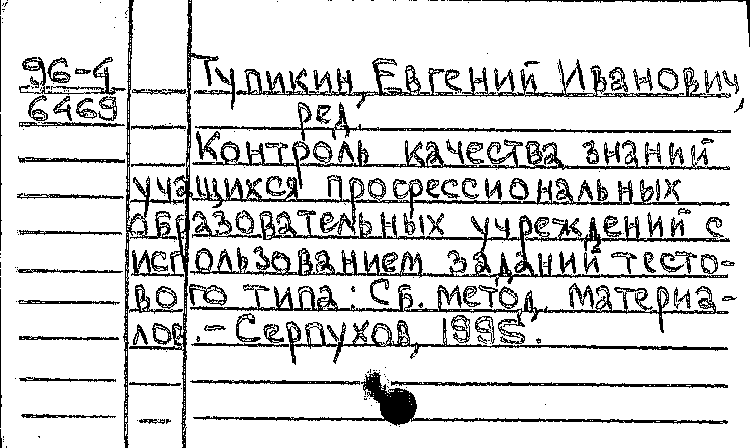 96-4 Тупикин, Евгений Иванович,
6469 ред.
Контроль качества знаний
учащихся профессиональных
образовательных учреждений с
использованием заданий тесто-
вого типа: Сб. метод. материа-
лов.- Серпухов, 1995.